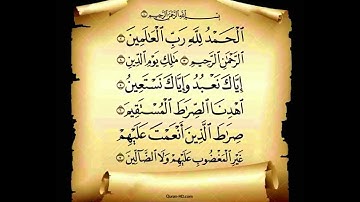 بِسْمِ اللَّهِ الرَّحْمَٰنِ الرَّحِيمِ ۝
الْحَمْدُ لِلَّهِ رَبِّ الْعَالَمِينَ ۝
الرَّحْمَٰنِ الرَّحِيمِ ۝ مَالِكِ يَوْمِ الدِّينِ ۝
إِيَّاكَ نَعْبُدُ وَإِيَّاكَ نَسْتَعِينُ ۝
اهْدِنَا الصِّرَاطَ الْمُسْتَقِيمَ ۝
صِرَاطَ الَّذِينَ أَنْعَمْتَ عَلَيْهِمْ
غَيْرِ الْمَغْضُوبِ عَلَيْهِمْ وَلَا الضَّالِّينَ ۝
Quran-HD.com